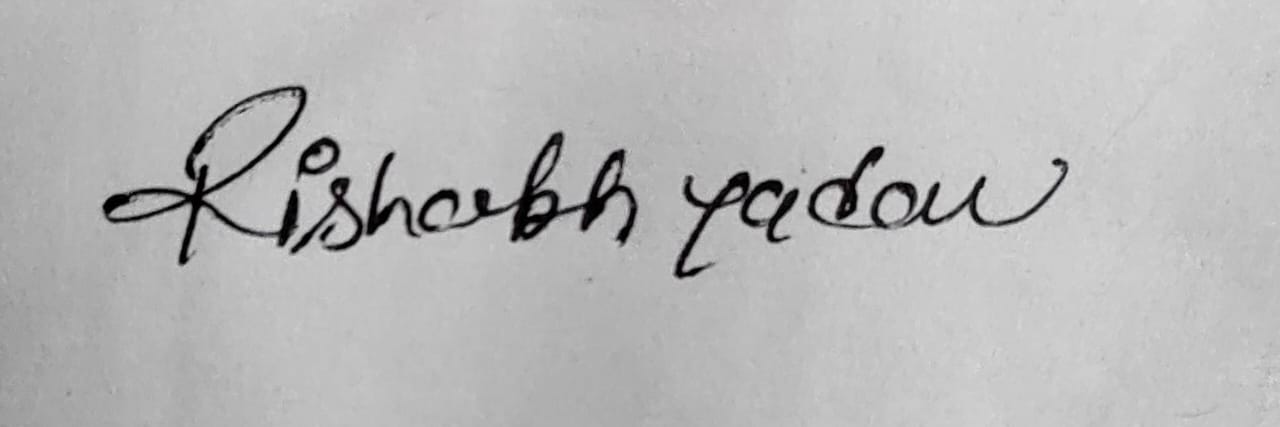 Rishabh yadav